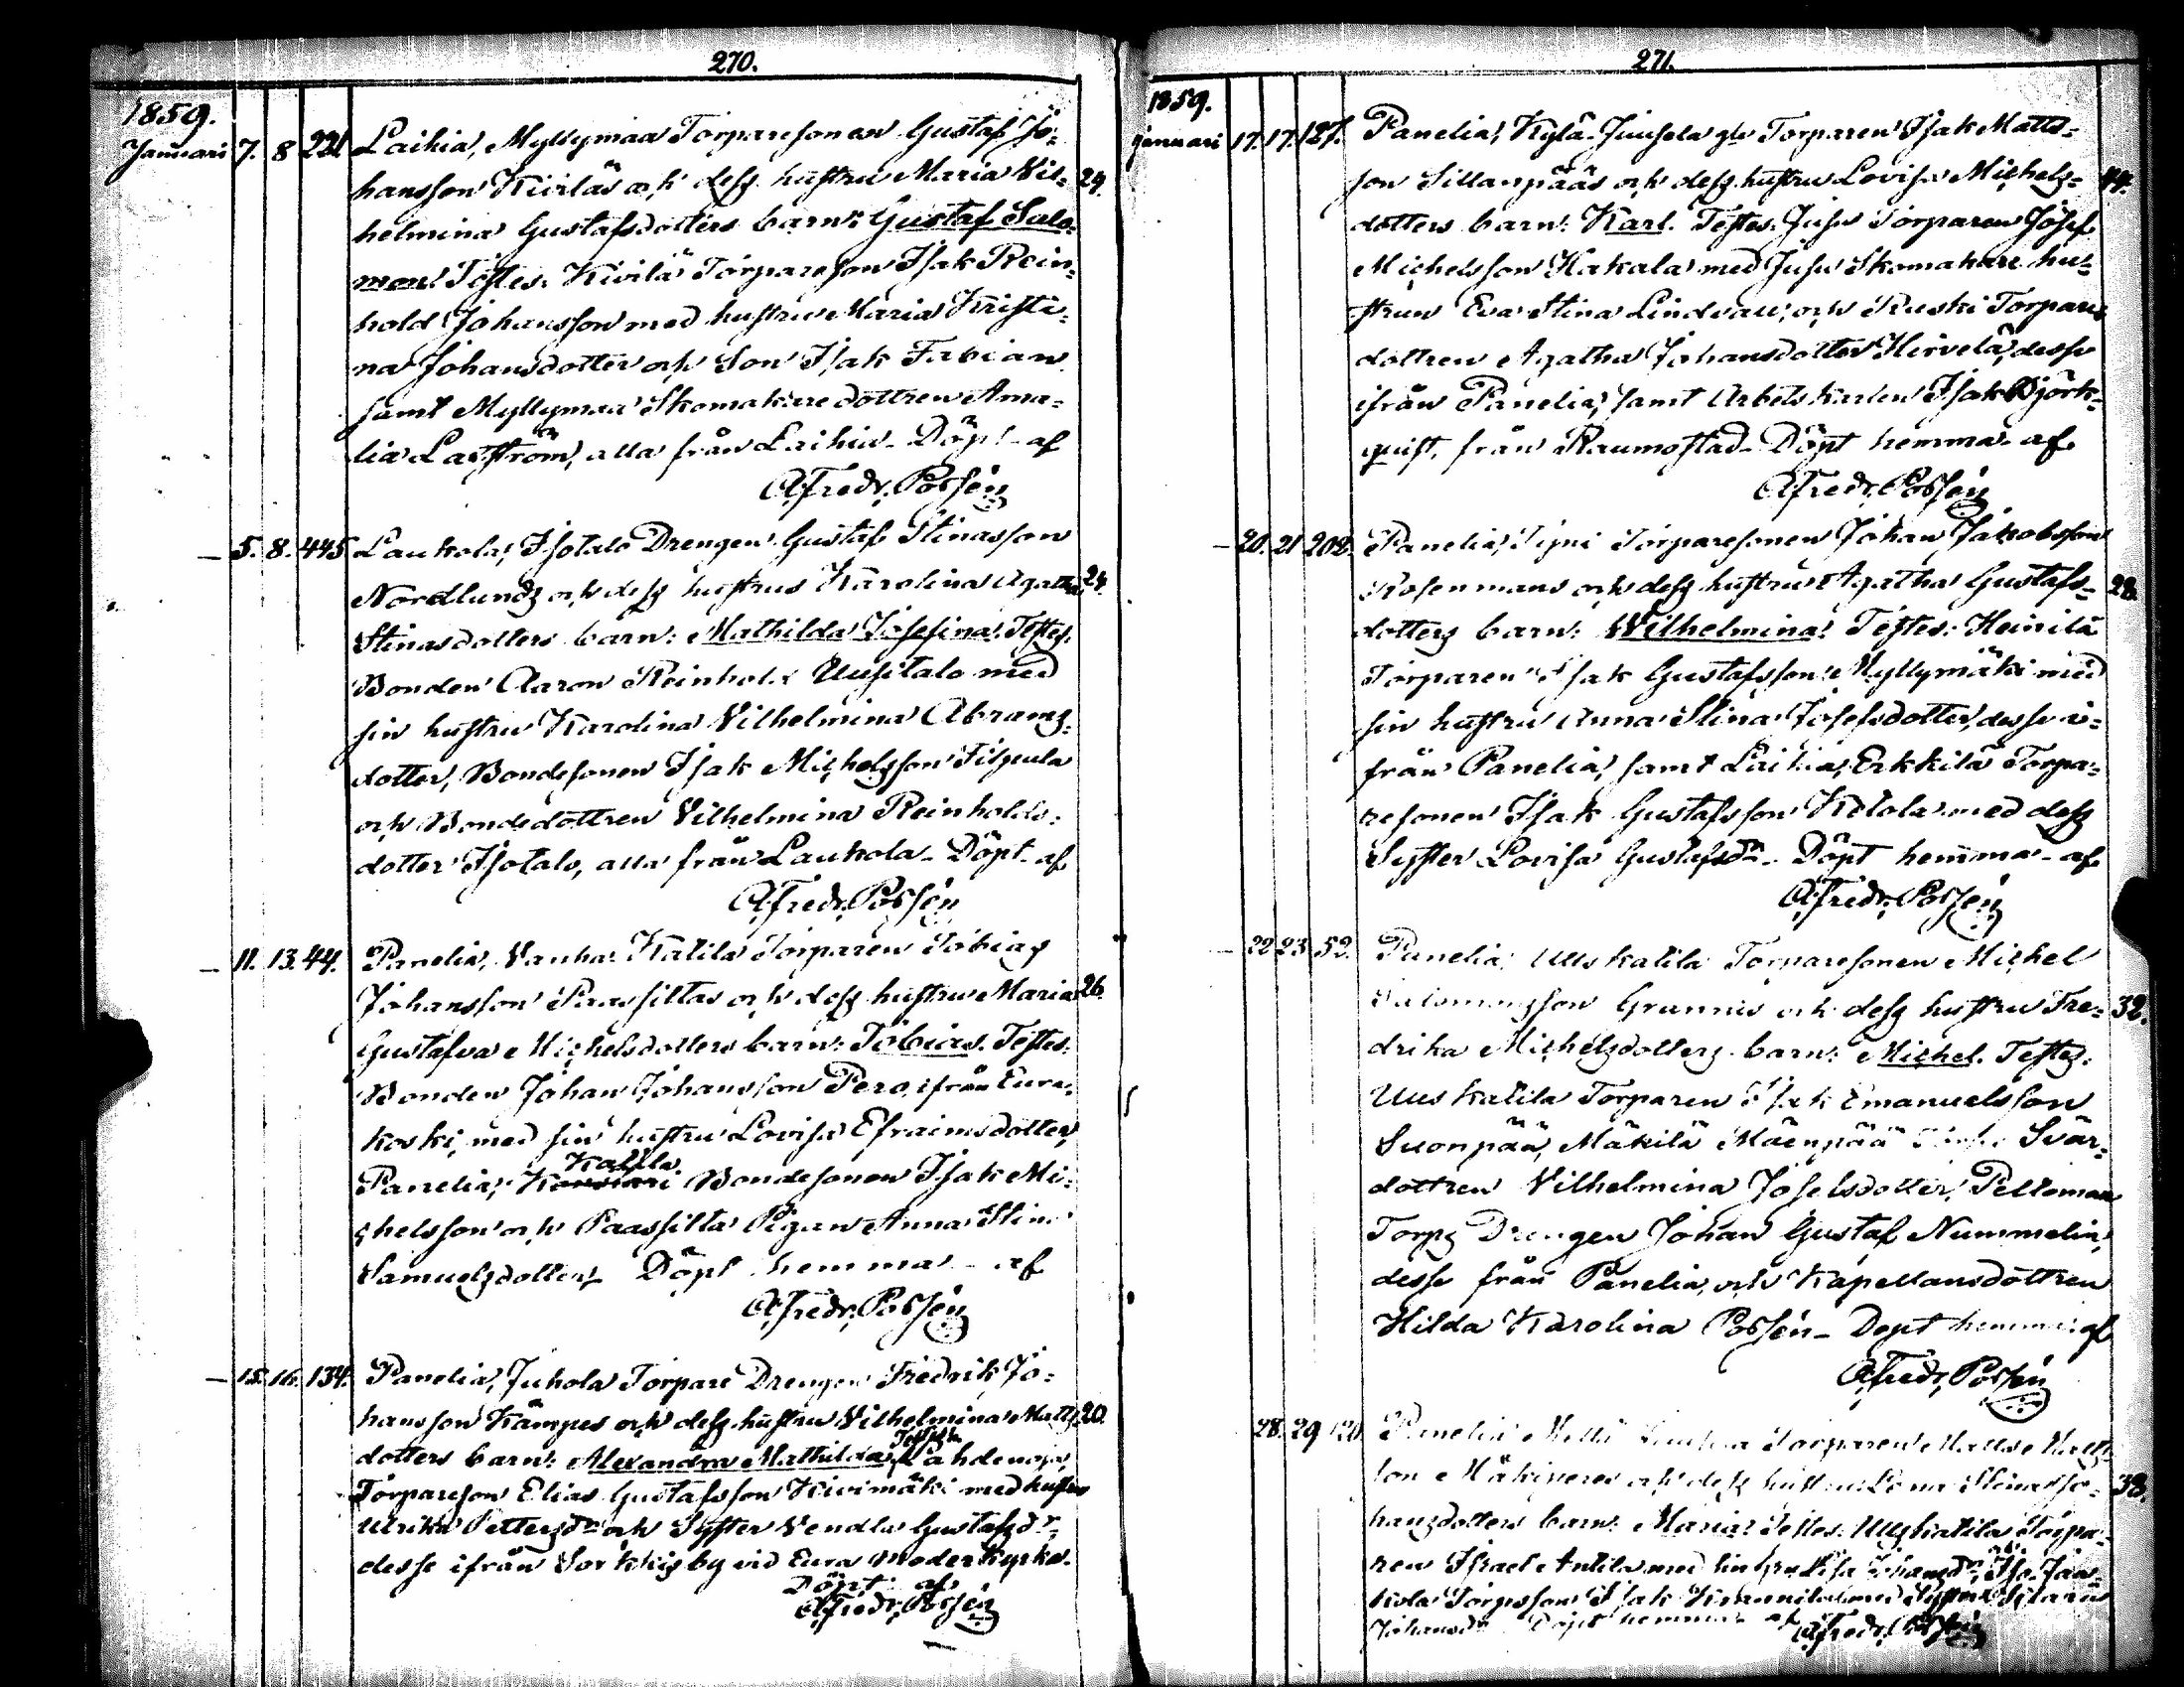 270.
1859.
Januari 7. 8 221 Laihia, Myllymaa Torparesonen Gustaf Jo-
hansson Kiviläs och dess hustru Maria Vil- 29.
helmina Gustafsdotters barn: Gustaf Salo-
mon. Testes: Kivilä Torpareson Isak Rein-
hold Johansson med hustru Maria Kristi-
na Johansdotter och Son Isak Fabian
samt Myllymaa Skomakaredottren Ama-
lia Lagström, alla från Laihia - Döpt af
A. Fredr. Possén
- 5. 8. 445 Laukola, Isotalo Drengen Gustaf Stinasson
Nordlunds och dess hustrus Karolina Agatha 24.
Stinasdotters barn: Mathilda Josefina. Testes:
Bonden Aaron Reinhold Uusitalo med
sin hustru Karolina Vilhelmina Abrams-
dotter, Bondesonen Isak Michelsson
och Bondedottren Vilhelmina Reinholds-
dotter Isotalo, alla från Laukola - Döpt af
A. Fredr. Possén
- 11. 13. 44. Panelia, Vanha Katila Torparen Tobias
Johansson Paasiltas och dess hustru Maria 26.
Gustafva Michelsdotters barn: Tobias. Testes:
Bonden Johan Johansson Pero, ifrån Eura-
koski, med sin hustru Lovisa Efraimsdotter,
Katila
Panelia, Bondesonen Isak Mi-
chelsson och Paassilta Pigan Anna Stina
Samuelsdotter. Döpt hemma - af
A. Fredr. Possén
- 15. 16. 134. Panelia, Juhola Torpare Drengen Fredrik Jo-
hansson Kämpes och dess hustru Vilhelmina Matts 20.
dotters barn: Alexandra Mathilda Testes: Lahdenoja
Torpareson Elias Gustafsson Kivimäki med hustru
Ulrika Pettersdr och Syster Vendla Gustafsdr.
desse ifrån Sorkkis by vid Eura Moderkyrka.
Döpt af
A. Fredr. Possén
271.
1859.
Januari 17. 17. 127. Panelia, Kylä-Juusela Torparen Isak Matts-
son Sillanpääs och dess hustru Lovisa Michels- 44.
dotters barn: Karl. Testes: Juusu Torparen Josef
Michelsson Hakala med Juusu Skomakare hu-
strun Eva Stina Lindvall, och Ruski Torpare
dottren Agatha Johansdotter Hirvelä, desse
ifrån Panelia, samt Arbetskarlen Isak Björk-
quist, från Raumo stad - Döpt hemma af
A. Fredr. Possén
- 20. 21 202. Panelia, Torparesonen Johan Jakobsson
Rosenmans och dess hustru Agatha Gustafs- 28.
dotters barn: Wilhelmina. Testes: Heinilä
Torparen Isak Gustafsson Myllymäki med
sin hustru Anna Stina Josefsdotter, desse i-
från Panelia, samt Laihia, Erkkilä Torpa-
resonen Isak Gustafsson Ketola med dess
Syster Lovisa Gustafsdr. Döpt hemma - af
A. Fredr. Possén
- 22 23 52. Panelia, Uuskatila Torparesonen Michel
Salomonsson Grannis och dess hustru Fre- 32.
drika Michelsdotters barn: Michel. Testes:
Uuskatila Torparen Isak Emanuelsson
Suonpää, Mäkilä Mäenpää Svär-
dottren Vilhelmina Josefsdotter, Peltomaa
Torps Drengen Johan Gustaf Nummelin,
desse från Panelia, och Kapellansdottren
Hilda Karolina Possén - Döpt hemma af
A. Fredr. Possén
28. 29 Panelia Torparen Matts Matts-
son och dess hustru Lena Stina Jo- 38.
hansdotters barn: Maria. Testes: Uuskatila Torpa-
ren Israel Antila med sin hustru Lisa Johansdr, Iso-Jan-
kola Torpsson Isak med Syster
Johansdr Döpt hemma af A. Fredr. Possén